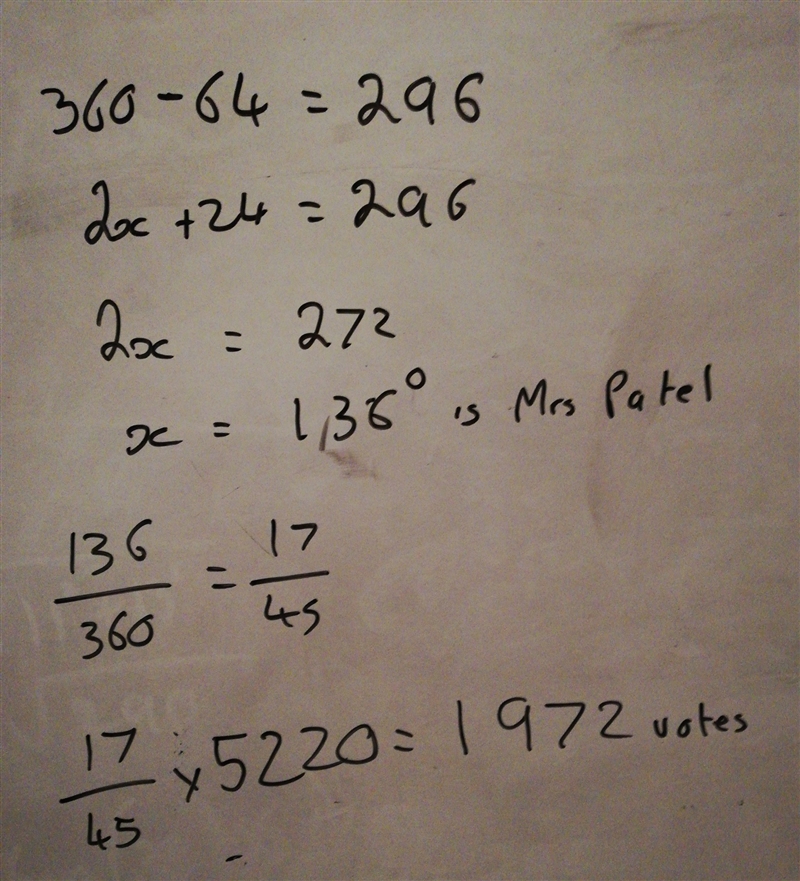 360 - 64 = 296
2x + 24 = 296
2x = 272
x = 136° is Mrs Patel
136/360 = 17/45
17/45 x 5220 = 1972 votes